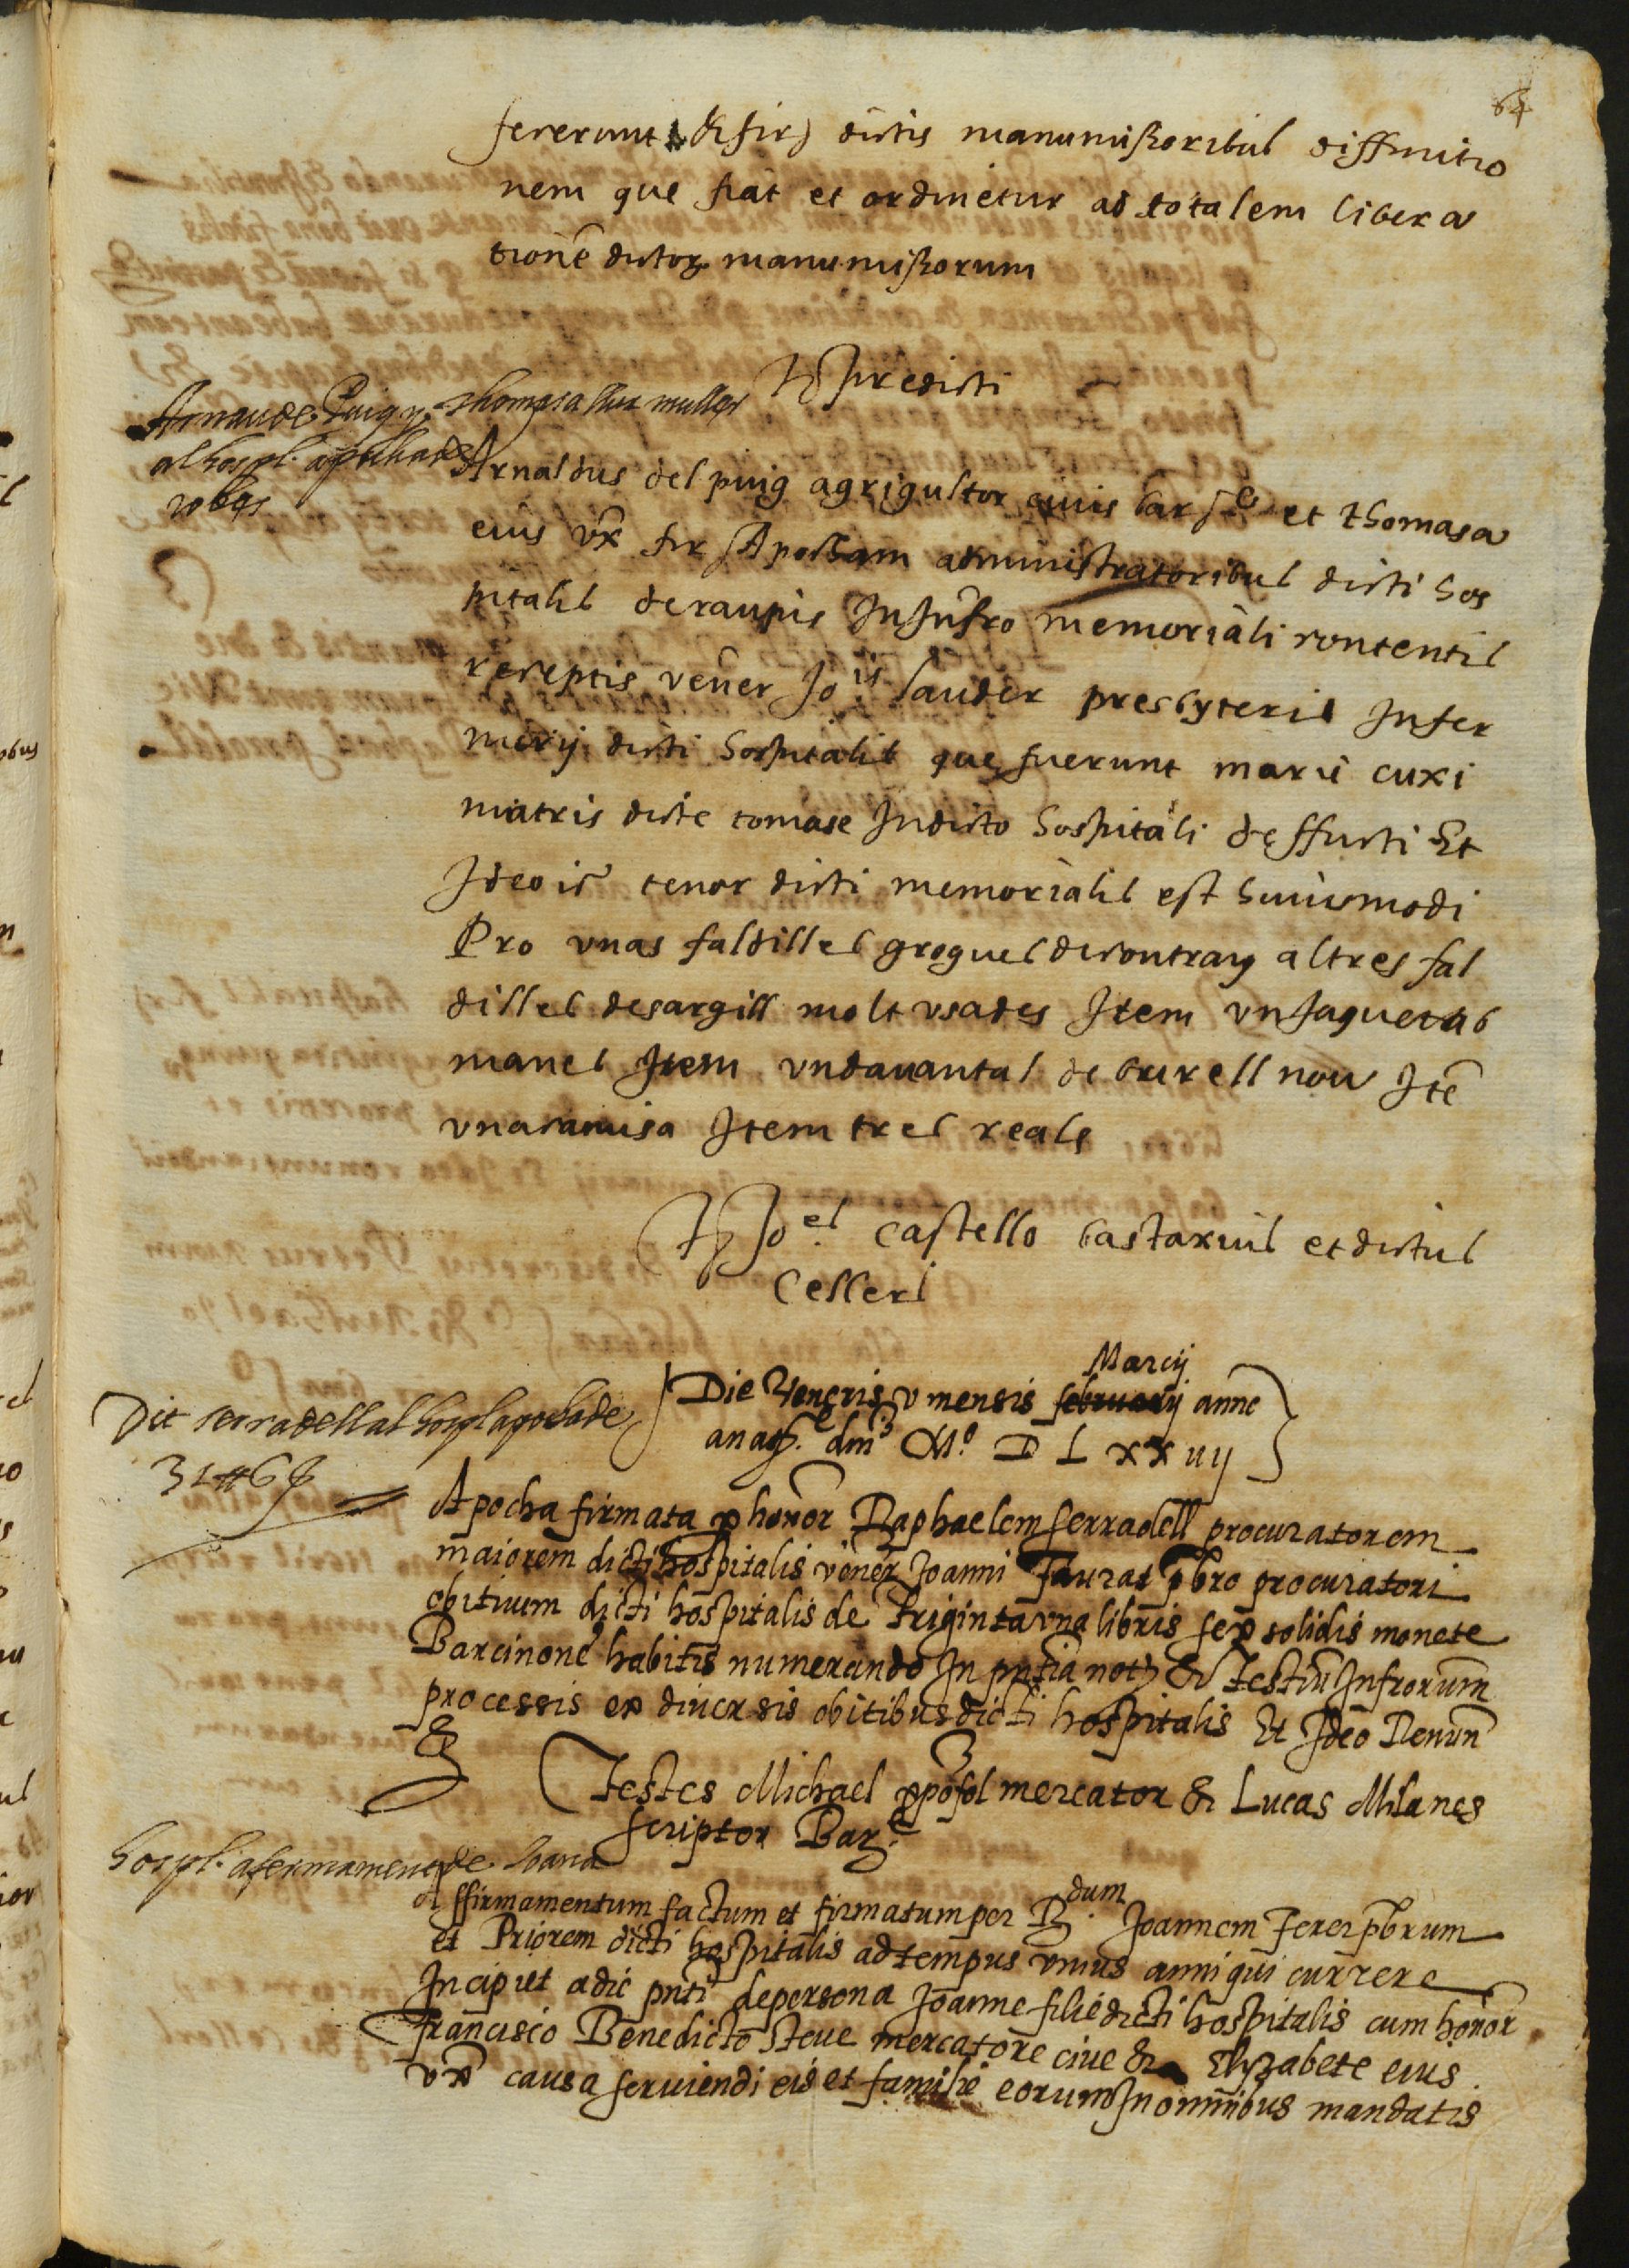 64
fecerunt & fir) dictis manumissoribus diffinitio
nem que fiat et ordinetur ad totalem libera
tionē dictoꝝ manumissorum
Tˢ predicti
Arnau del Puig y thomasa sua muller
al hospl. apocha de
robes
Arnaldus del puig agrigultor ciuis barᵉ et thomasa
eius vx̄ fir Apocham administratoribus dicti hos
pitalis de raupis In Infrō memoriali contentis
receptis vener Joⁱˢ lauder presbyteris Infer
merij dicti hospitalis que fuerunt marie cuxi
matris dicte tomase In dicto hospitali deffucti Et
Ideo ir̄ tenor dicti memorialis est huiusmodi
Pro vnas faldilles grogues de contray altres fal
dilles desargill molt vsades Item vn Jaquet ab
manes Item vn dauantal de burell nou Itē
vna camisa Item tres reals
Tˢ Joᵉˡ castello bastaxius et dictus
Cellers
Marcij
Die Veneris v mensis february anno
a naᵗᵉ. dm̄ Mº D L xx iiij
Dit serradell al hospl apocha de
31 ₶ 6 ſ
Apocha firmata ꝑ honōr Raphaelem serradell procuratorem
maiorem dicti hospitalis venēr Joanni Taurat pb̄ro procuratori
obituum dicti hospitalis de triginta vna libris sex solidis monete
Barcinonē habitis numerando In pn̄tia notʲ & Testiū Infrorum̄
processis ex diuersis obitibus dicti hospitalis Et Ideo Renun̄
&
Testes Michael ꝓposol mercator & Lucas Milanes
scriptor Barᵉ
hospl. afermament de Joana
Affirmamentum factum et firmatum per Rᵈᵘᵐ. Joannem Ferer pb̄rum
et Priorem dicti hospitalis ad tempus vnius anni qui currere
Incipiet a die pn̄ti de persona Joanne filie dicti hospitalis cum honōr
Francisco Benedicto Steue mercatore ciue & Elyzabete eius
vx̄ causa seruiendi eis et familie eorum In omnibus mandatis